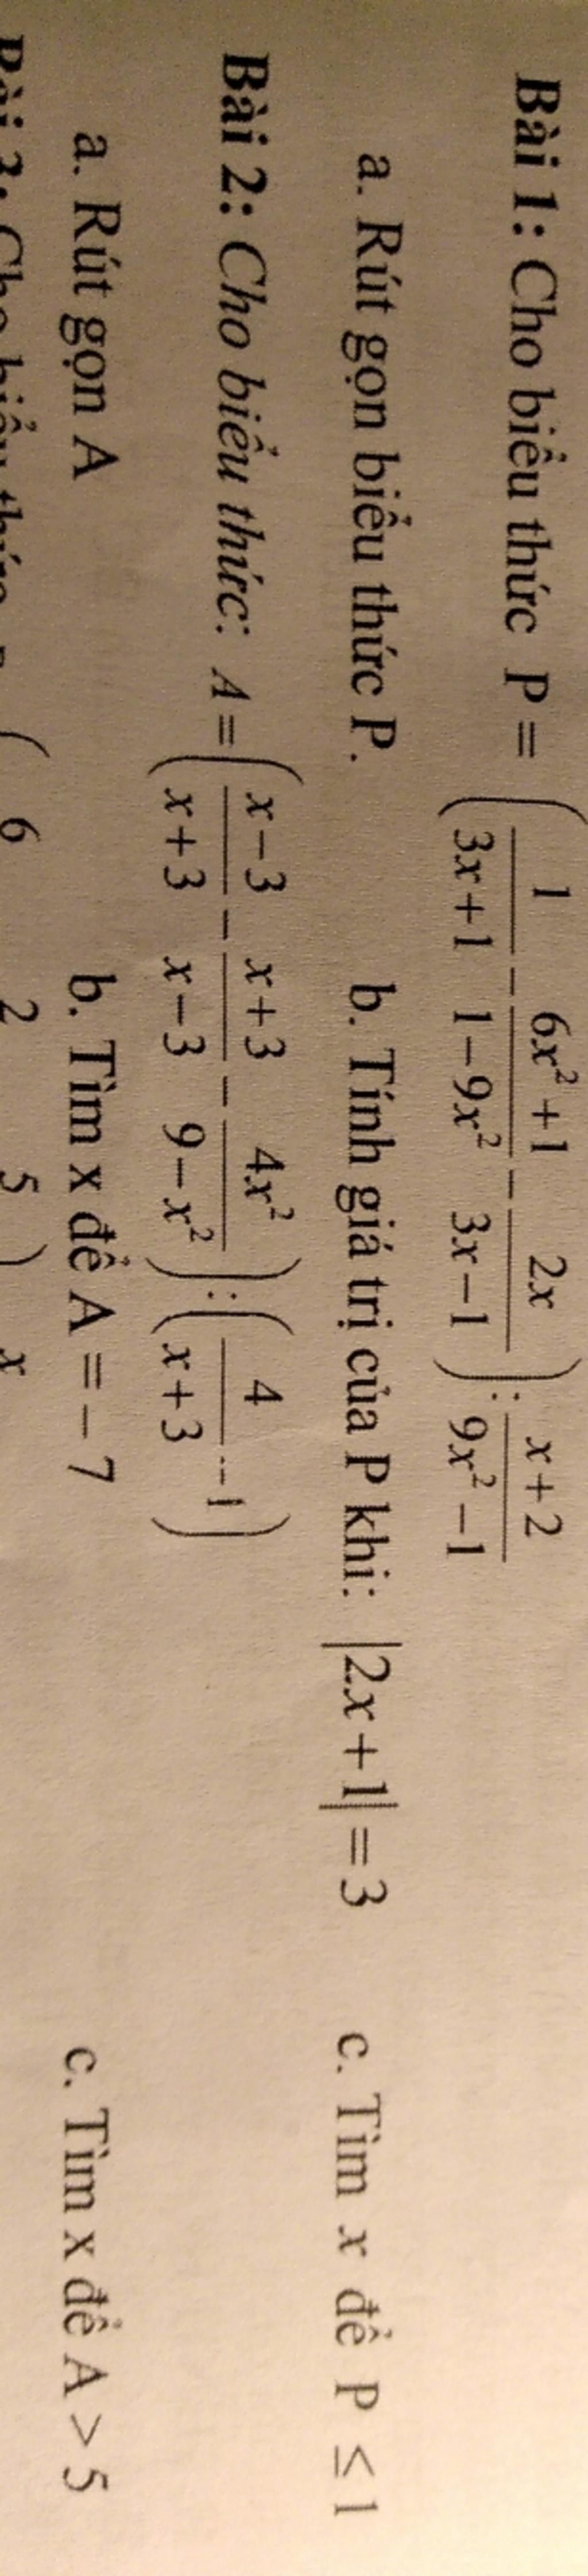 Bài 1: Cho biểu thức P = (1/(3x+1) − (6x²+1)/(1−9x²) − 2x/(3x−1)) : (x+2)/(9x²−1)
a. Rút gọn biểu thức P. b. Tính giá trị của P khi: |2x+1| = 3 c. Tìm x để P ≤ 1
Bài 2: Cho biểu thức: A = ((x−3)/(x+3) − (x+3)/(x−3) − 4x²/(9−x²)) : (4/(x+3) − 1)
a. Rút gọn A b. Tìm x để A = − 7 c. Tìm x để A > 5
6 2 5 x